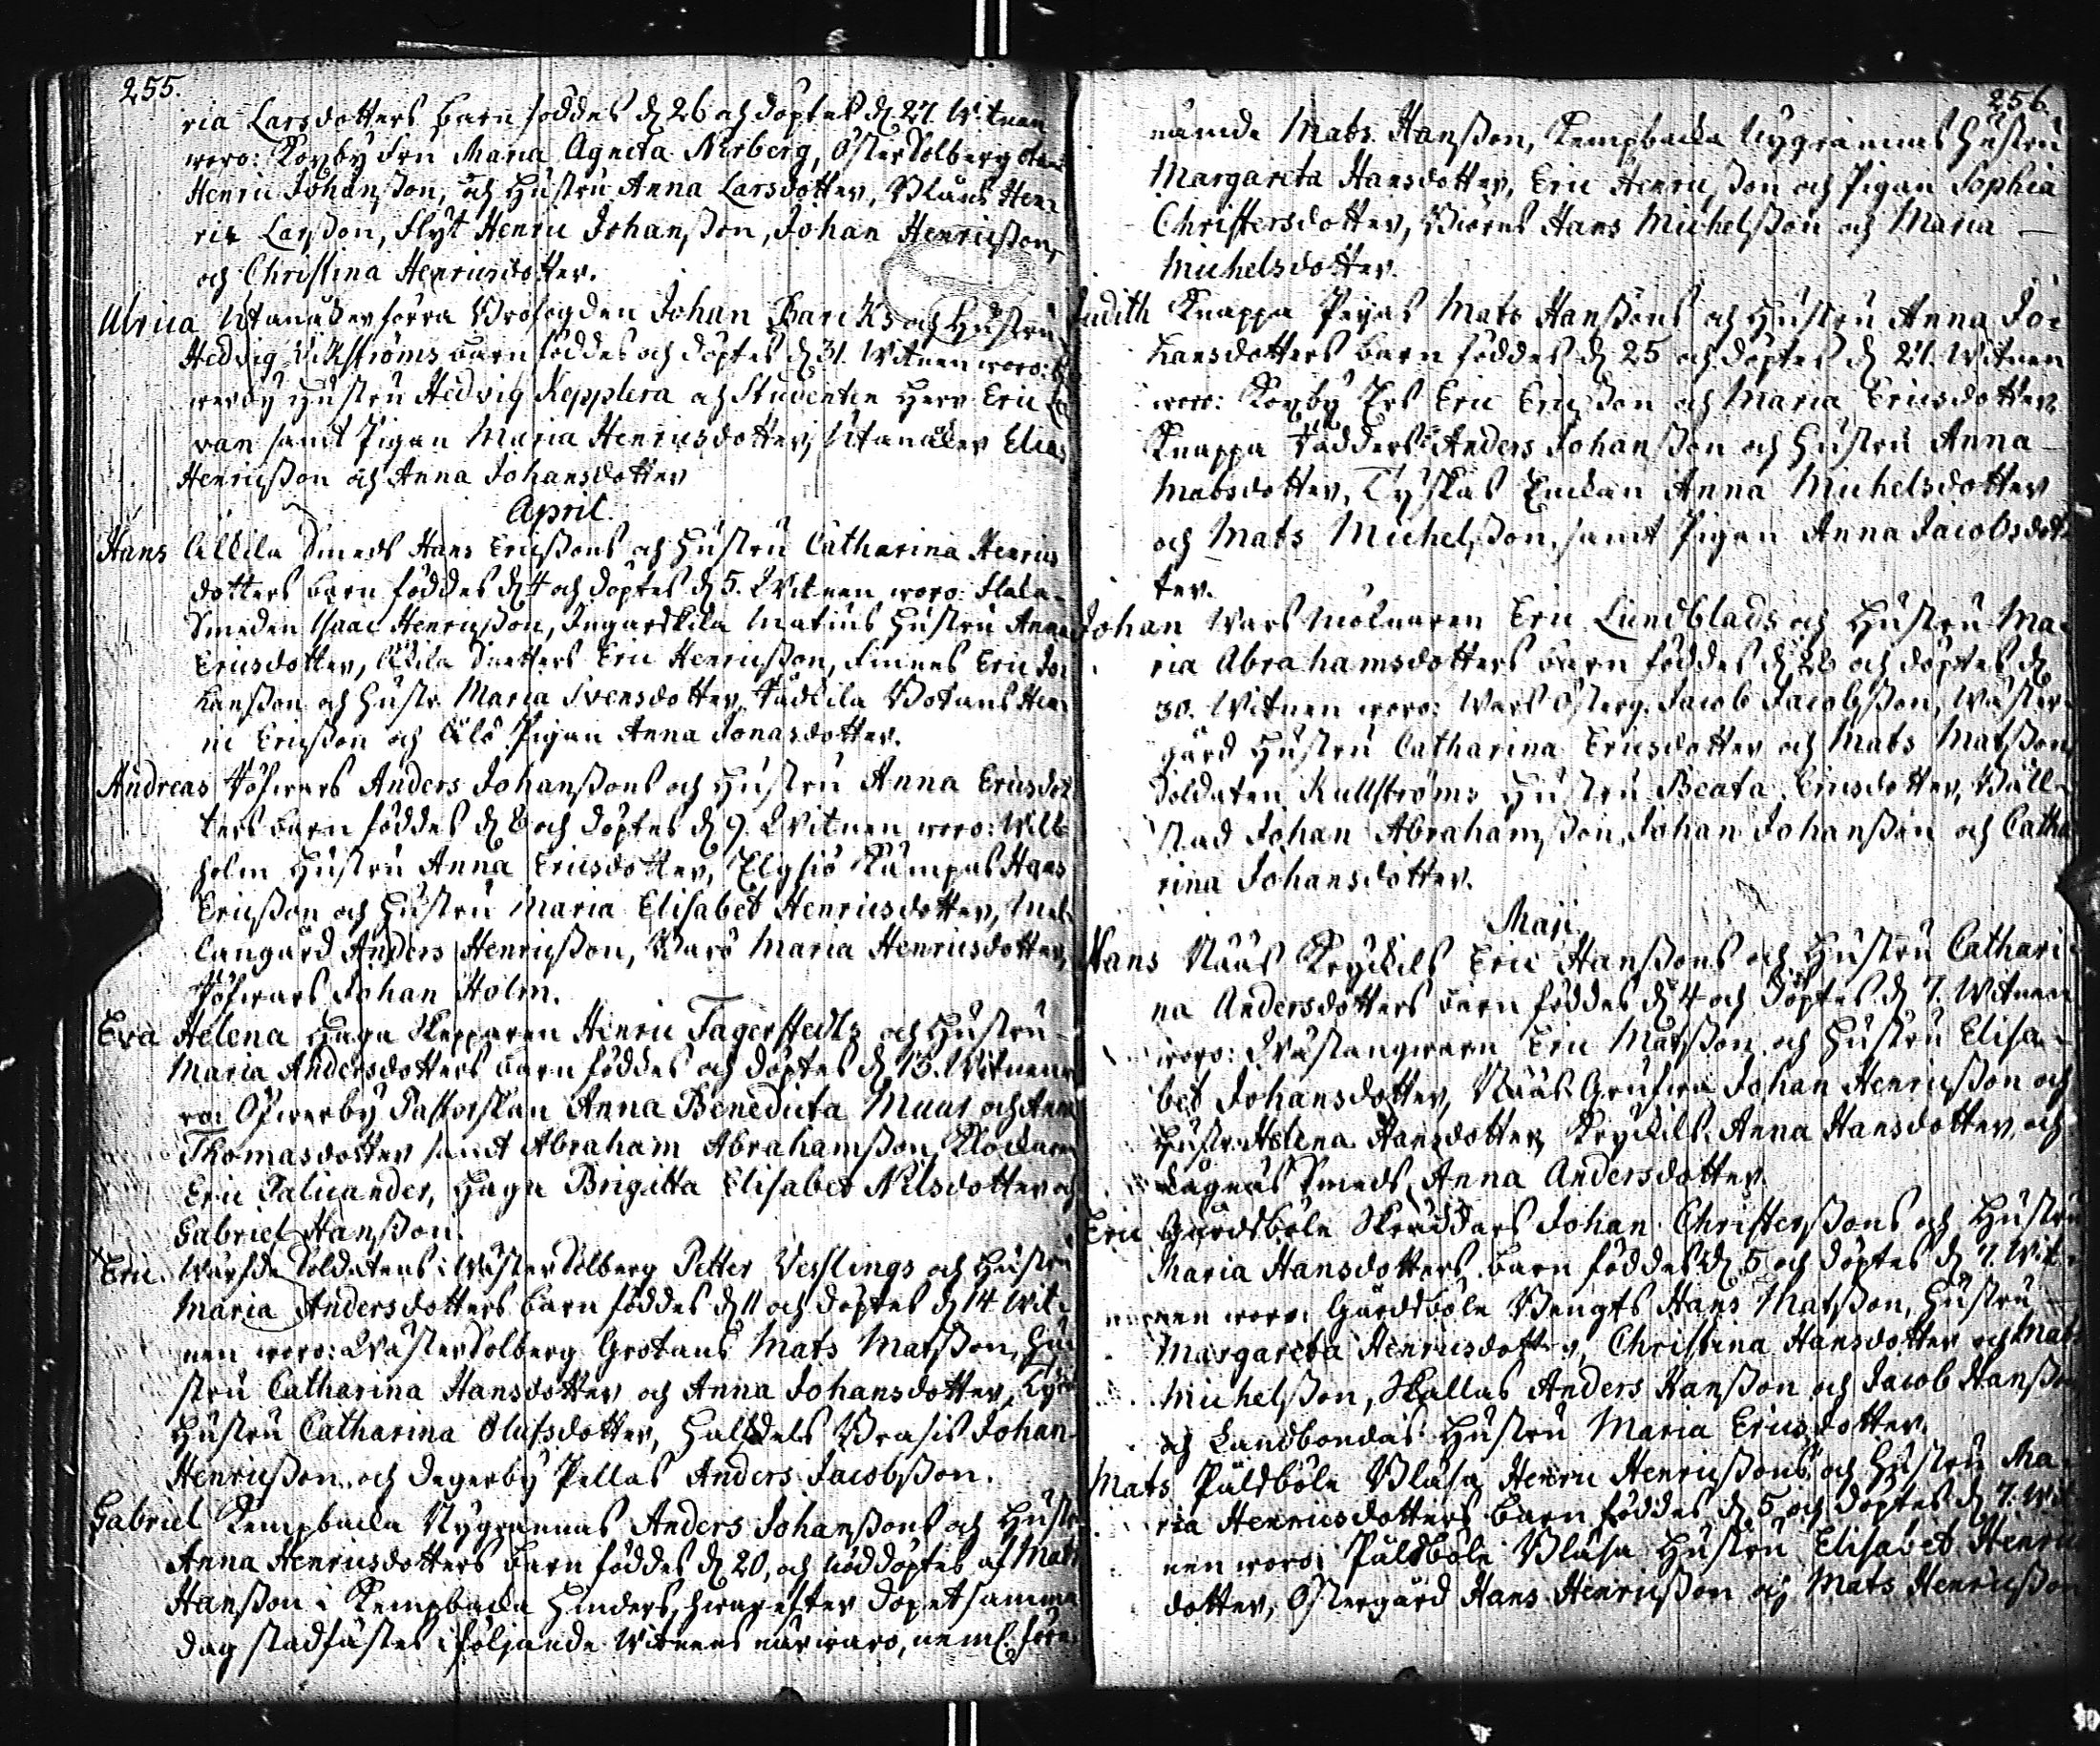 255.
ria Larsdotters barn föddes d. 26 och döptes d. 27. Witnen
woro: Korsby Fru Maria Agneta Nirberg, Östersolberg
Henric Johansson, och Hustru Anna Larsdotter, Blåns Hen-
ric Larsson, Flyt Henric Johansson, Johan Henricsson,
och Christina Henricsdotter.
Ulrica Utanåker förra Brofogden Johan Barcks och Hustru
Hedvig Vikströms barn föddes och döptes d. 31. Witnen woro:
Hustru Hedvig Kepplera och Studenten Herr Eric
samt Pigan Maria Henricsdotter, Utanåker Elias
Henricsson och Anna Johansdotter
April.
Hans Smeds Hans Ericssons och Hustru Catharina Henrics
dotters barn föddes d. 4 och döptes d. 5. Witnen woro:
Smeden Isaac Henricsson, Ingardskila Matius Hustru Anna
Ericsdotter, Eric Henricsson, Finnes Eric Jo-
hansson och Hustr. Maria Svensdotter, Tådkila Botans Hen-
ric Ericsson och Pigan Anna Jonasdotter.
Andreas Töfwars Anders Johanssons och Hustru Anna Ericsdot
ters barn föddes d. 8 och döptes d. 9. Witnen woro: Will-
holm Hustru Anna Ericsdotter, Elgsiö Kumpas Hans
Ericsson och Hustru Maria Elisabet Henricsdotter, Mel-
langård Anders Henricsson, Maria Henricsdotter,
Töfwars Johan Holm.
Eva Helena Haga Skepparen Henric Fagerstedts och Hustru
Maria Andersdotters barn föddes och döptes d. 13. Witnen wo
ro: Öfwerby Pastorskan Anna Benedicta Muur och Anna
Thomasdotter samt Abraham Abrahamsson, Klockaren
Eric Palicander, Haga Brigitta Elisabet Nilsdotter och
Gabriel Hansson.
Eric. Wärfde Soldatens i Wästersolberg Petter Vesslings och Hustru
Maria Andersdotters barn föddes d. 11 och döptes d. 14 Wit-
nen woro: Wästersolberg Grotans Mats Matsson, Hu-
stru Catharina Hansdotter och Anna Johansdotter,
Hustru Catharina Olufsdotter, Halfdels Brasis Johan
Henricsson, och Degerby Pellas Anders Jacobsson.
Gabriel Kempbacka Nygrannas Anders Johanssons och Hustr
Anna Henricsdotters barn föddes d. 20, och nöddöptes af Mats
Hansson i Kempbacka Hinders, hwarefter dopet samma
dag stadfästes i följande Witnens närwaro, neml. före-
256.
nämde Mats Hansson, Kempbacka Nygrannas Hustru
Margareta Hansdotter, Eric Henricsson och Pigan Sophia
Christersdotter, Biörns Hans Michelsson och Maria
Michelsdotter.
Judith Knappa Peijas Mats Hanssons och Hustru Anna Jo-
hansdotters barn föddes d. 25 och döptes d. 27. Witnen
woro: Korsby Ers Eric Ericsson och Maria Ericsdotter
Knappa Anders Johansson och Hustru Anna
Matsdotter, Tyskas Enckan Anna Michelsdotter
och Mats Michelsson, samt Pigan Anna Jacobsdot-
ter.
Johan Wars Mölnaren Eric Lundblads och Hustru Ma-
ria Abrahamsdotters barn föddes d. 28 och döptes d.
30. Witnen woro: Wars Österg. Jacob Jacobsson, Wäster-
gård Hustru Catharina Ericsdotter och Mats Matsson
Soldaten Kullströms Hustru Beata Ericsdotter, Wäll-
stad Johan Abrahamsson, Johan Johansson och Catha
rina Johansdotter.
Maji
Hans Nääs Kryckils Eric Hanssons och Hustru Cathari-
na Andersdotters barn föddes d. 4 och döptes d. 7. Witnen
woro: Wästangwarn Eric Matsson och Hustru Elisa-
bet Johansdotter, Nääs Grufwa Johan Henricsson och
Hustr. Helena Hansdotter, Kryckils Anna Hansdotter, och
Smeds Anna Andersdotter.
Eric Gårdsböle Skräddars Johan Christerssons och Hustru
Maria Hansdotters barn föddes d. 5 och döptes d. 7. Wit-
nen woro: Gårdsböle Bengts Hans Matsson, Hustru
Margareta Henricsdotter, Christina Hansdotter och Mats
Michelsson, Skallas Anders Hansson och Jacob Hansson
och Landbondas Hustru Maria Ericsdotter.
Mats Påldböle Blåsa Henric Henricssons och Hustru Ma-
ria Henricsdotters barn föddes d. 5 och döptes d. 7. Wit
nen woro: Påldböle Blåsa Hustru Elisabet Henric
dotter, Östergård Hans Henricsson och Mats Henricsson